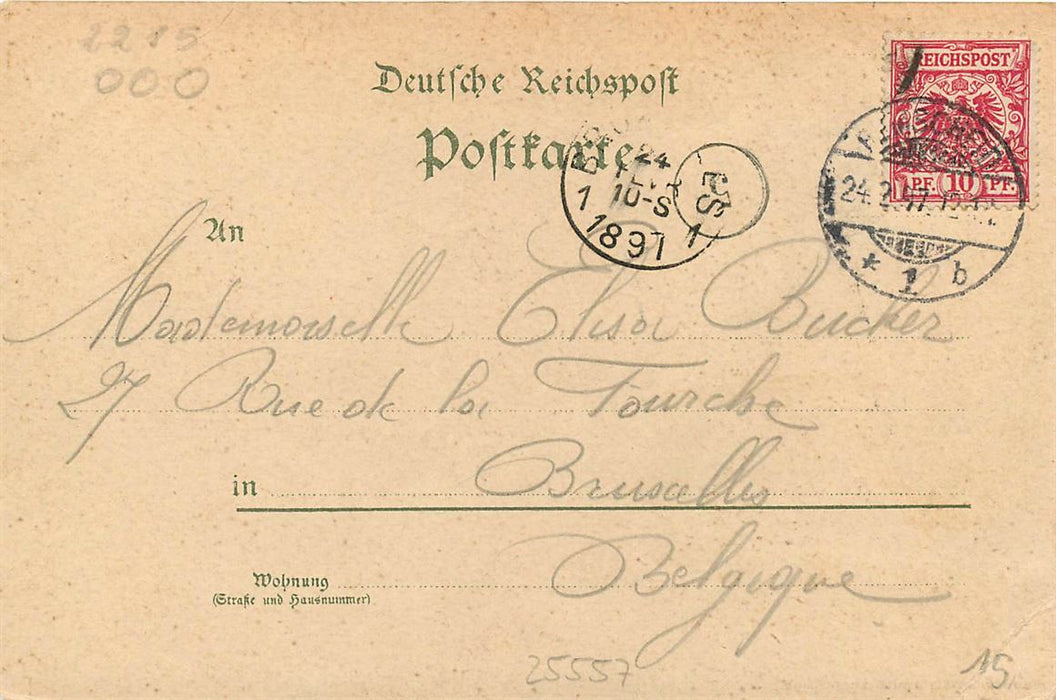 2215
000
Deutsche Reichspost
Postkarte
REICHSPOST
PF. 10 PF.
24
10-S
1 1
1897
PS
24.2.97.
* * 1 b
An
Mademoiselle Elisa Bucker
27 Rue de la Fourche
in Bruxelles
Belgique
Wohnung
(Straße und Hausnummer)
25557
15